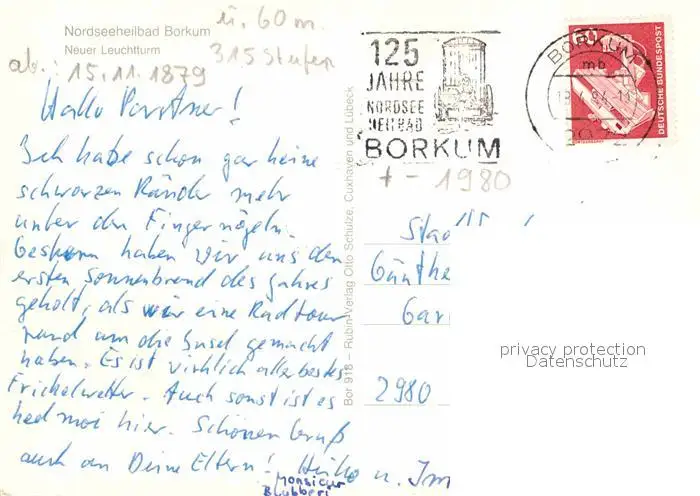 Nordseeheilbad Borkum
Neuer Leuchtturm
ü. 60 m.
315 Stufen
ab.: 15.11.1879
Hallo Partner!
Ich habe schon gar keine
schwarzen Ränder mehr
unter den Fingernägeln.
Gestern haben wir uns den
ersten Sonnenbrand des Jahres
geholt, als wir eine Radtour
rund um die Insel gemacht
haben. Es ist wirklich allerbestes
Frickelwetter. Auch sonst ist es
hed moi hier. Schönen Gruß
auch an Deine Eltern! Heiko u. Im
Monsieur
Blubberi
Bor 918 – Rubin-Verlag Otto Schulze, Cuxhaven und Lübeck
125
JAHRE
NORDSEE
HEILBAD
BORKUM
+ - 1980
BORKUM
mb
2972
60
DEUTSCHE BUNDESPOST
Günthe
Gar
2980
privacy protection
Datenschutz